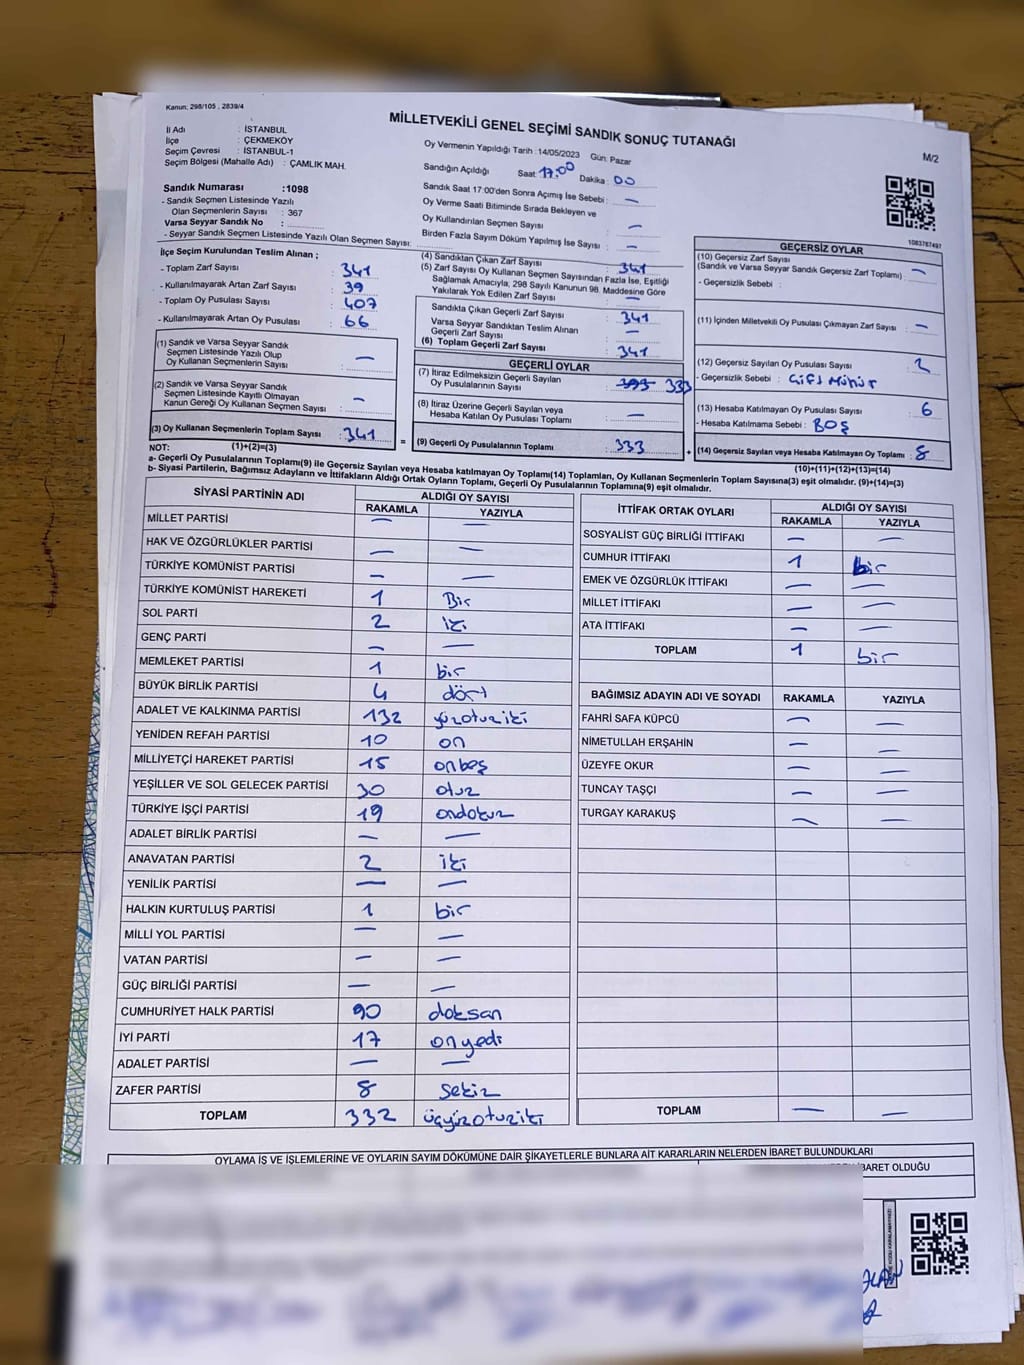 Kanun; 298/105 , 2839/4
MİLLETVEKİLİ GENEL SEÇİMİ SANDIK SONUÇ TUTANAĞI
M/2
İl Adı : İSTANBUL
İlçe : ÇEKMEKÖY
Seçim Çevresi : İSTANBUL-1
Seçim Bölgesi (Mahalle Adı) : ÇAMLIK MAH.
Sandık Numarası :1098
- Sandık Seçmen Listesinde Yazılı
Olan Seçmenlerin Sayısı : 367
Varsa Seyyar Sandık No :
- Seyyar Sandık Seçmen Listesinde Yazılı Olan Seçmen Sayısı:
Oy Vermenin Yapıldığı Tarih : 14/05/2023 Gün: Pazar
Sandığın Açıldığı Saat 17:00 Dakika : 00
Sandık Saat 17:00'den Sonra Açımış İse Sebebi : —
Oy Verme Saati Bitiminde Sırada Bekleyen ve
Oy Kullandırılan Seçmen Sayısı : —
Birden Fazla Sayım Döküm Yapılmış İse Sayısı : —
1083787497
İlçe Seçim Kurulundan Teslim Alınan ;
- Toplam Zarf Sayısı : 341
- Kullanılmayarak Artan Zarf Sayısı : 39
- Toplam Oy Pusulası Sayısı : 407
- Kullanılmayarak Artan Oy Pusulası : 66
(1) Sandık ve Varsa Seyyar Sandık
Seçmen Listesinde Yazılı Olup
Oy Kullanan Seçmenlerin Sayısı : —
(2) Sandık ve Varsa Seyyar Sandık
Seçmen Listesinde Kayıtlı Olmayan
Kanun Gereği Oy Kullanan Seçmen Sayısı : —
(3) Oy Kullanan Seçmenlerin Toplam Sayısı : 341
NOT: (1)+(2)=(3)
(4) Sandıktan Çıkan Zarf Sayısı : 341
(5) Zarf Sayısı Oy Kullanan Seçmen Sayısından Fazla İse, Eşitliği
Sağlamak Amacıyla, 298 Sayılı Kanunun 98. Maddesine Göre
Yakılarak Yok Edilen Zarf Sayısı : —
Sandıkta Çıkan Geçerli Zarf Sayısı : 341
Varsa Seyyar Sandıktan Teslim Alınan
Geçerli Zarf Sayısı : —
(6) Toplam Geçerli Zarf Sayısı : 341
GEÇERLİ OYLAR
(7) İtiraz Edilmeksizin Geçerli Sayılan
Oy Pusulalarının Sayısı : 333
(8) İtiraz Üzerine Geçerli Sayılan veya
Hesaba Katılan Oy Pusulası Toplamı : —
= (9) Geçerli Oy Pusulalarının Toplamı : 333 +
GEÇERSİZ OYLAR
(10) Geçersiz Zarf Sayısı
(Sandık ve Varsa Seyyar Sandık Geçersiz Zarf Toplamı) : —
- Geçersizlik Sebebi :
(11) İçinden Milletvekili Oy Pusulası Çıkmayan Zarf Sayısı : —
(12) Geçersiz Sayılan Oy Pusulası Sayısı : 2
- Geçersizlik Sebebi : Çift Mühür
(13) Hesaba Katılmayan Oy Pusulası Sayısı 6
- Hesaba Katılmama Sebebi : BOŞ
(14) Geçersiz Sayılan veya Hesaba Katılmayan Oy Toplamı : 8
(10)+(11)+(12)+(13)=(14)
a- Geçerli Oy Pusulalarının Toplamı(9) ile Geçersiz Sayılan veya Hesaba katılmayan Oy Toplamı(14) Toplamları, Oy Kullanan Seçmenlerin Toplam Sayısına(3) eşit olmalıdır. (9)+(14)=(3)
b- Siyasi Partilerin, Bağımsız Adayların ve İttifakların Aldığı Ortak Oyların Toplamı, Geçerli Oy Pusulalarının Toplamına(9) eşit olmalıdır.
SİYASİ PARTİNİN ADI ALDIĞI OY SAYISI
RAKAMLA YAZIYLA
MİLLET PARTİSİ — —
HAK VE ÖZGÜRLÜKLER PARTİSİ — —
TÜRKİYE KOMÜNİST PARTİSİ — —
TÜRKİYE KOMÜNİST HAREKETİ 1 Bir
SOL PARTİ 2 iki
GENÇ PARTİ — —
MEMLEKET PARTİSİ 1 bir
BÜYÜK BİRLİK PARTİSİ 4 dört
ADALET VE KALKINMA PARTİSİ 132 yüzotuziki
YENİDEN REFAH PARTİSİ 10 on
MİLLİYETÇİ HAREKET PARTİSİ 15 onbeş
YEŞİLLER VE SOL GELECEK PARTİSİ 30 otuz
TÜRKİYE İŞÇİ PARTİSİ 19 ondokuz
ADALET BİRLİK PARTİSİ — —
ANAVATAN PARTİSİ 2 iki
YENİLİK PARTİSİ — —
HALKIN KURTULUŞ PARTİSİ 1 bir
MİLLİ YOL PARTİSİ — —
VATAN PARTİSİ — —
GÜÇ BİRLİĞİ PARTİSİ — —
CUMHURİYET HALK PARTİSİ 90 doksan
İYİ PARTİ 17 onyedi
ADALET PARTİSİ — —
ZAFER PARTİSİ 8 sekiz
TOPLAM 332 üçyüzotuziki
İTTİFAK ORTAK OYLARI ALDIĞI OY SAYISI
RAKAMLA YAZIYLA
SOSYALİST GÜÇ BİRLİĞİ İTTİFAKI — —
CUMHUR İTTİFAKI 1 bir
EMEK VE ÖZGÜRLÜK İTTİFAKI — —
MİLLET İTTİFAKI — —
ATA İTTİFAKI — —
TOPLAM 1 bir
BAĞIMSIZ ADAYIN ADI VE SOYADI RAKAMLA YAZIYLA
FAHRİ SAFA KÜPCÜ — —
NİMETULLAH ERŞAHİN — —
ÜZEYFE OKUR — —
TUNCAY TAŞÇI — —
TURGAY KARAKUŞ — —
TOPLAM — —
OYLAMA İŞ VE İŞLEMLERİNE VE OYLARIN SAYIM DÖKÜMÜNE DAİR ŞİKAYETLERLE BUNLARA AİT KARARLARIN NELERDEN İBARET BULUNDUKLARI
İBARET OLDUĞU